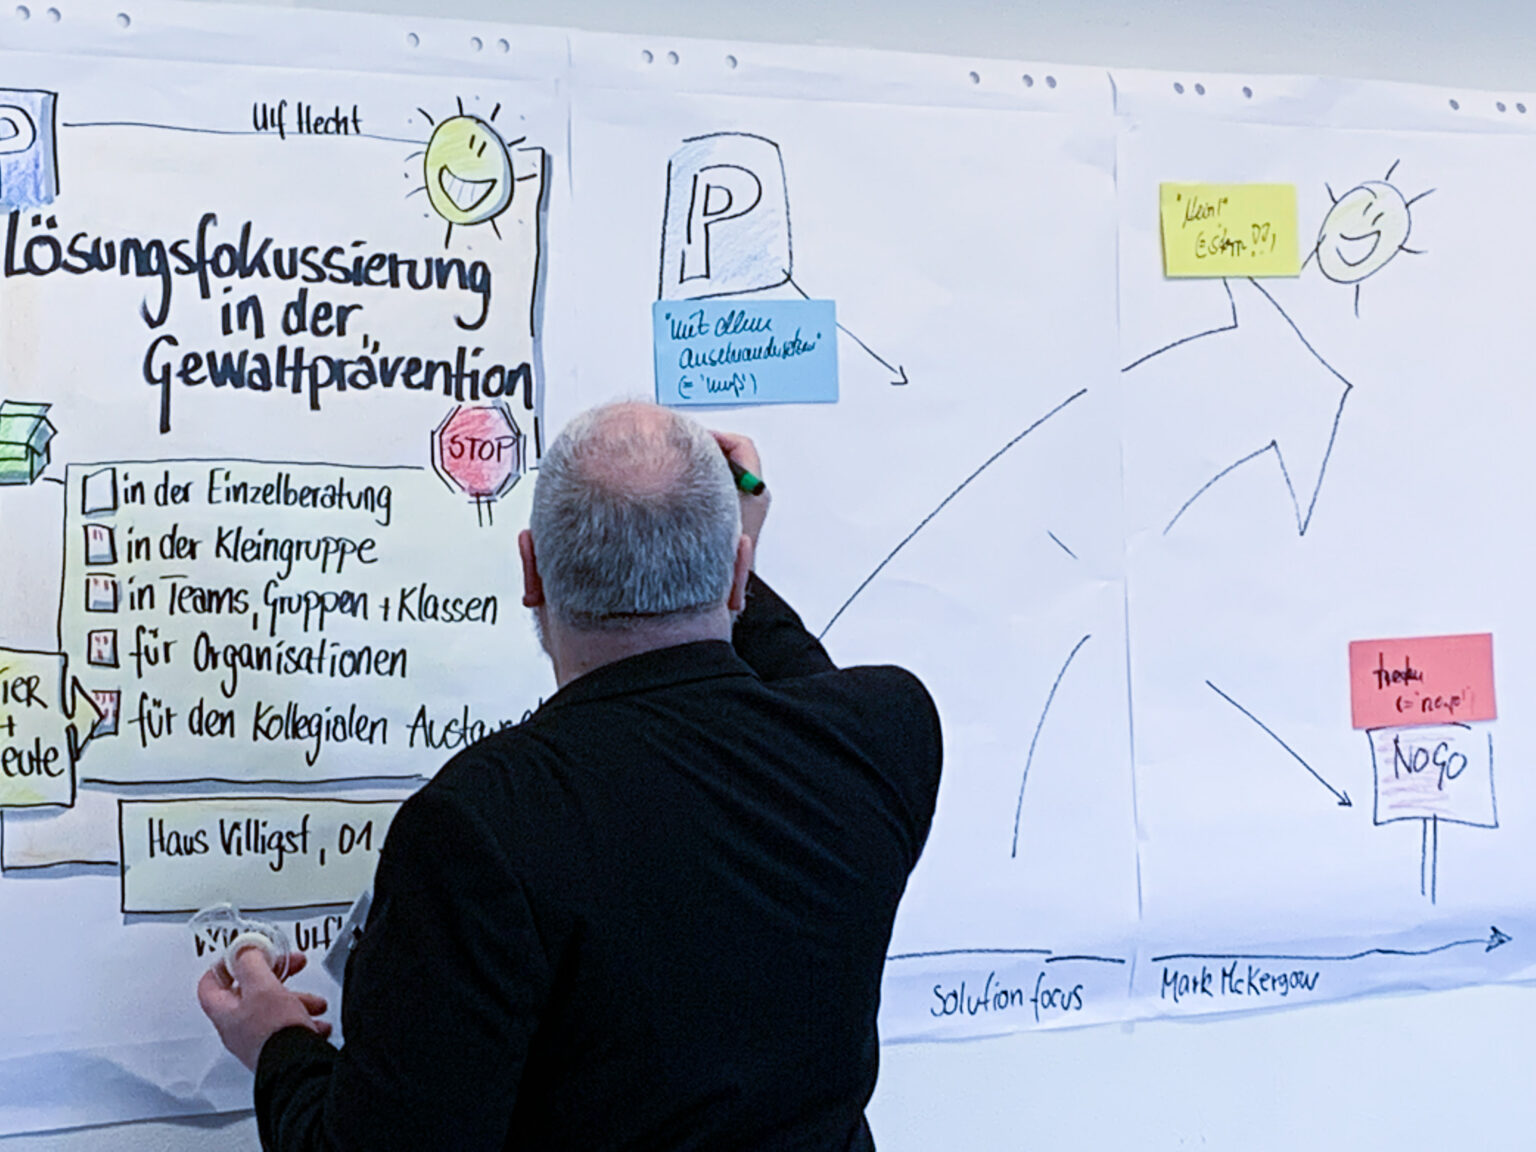 P
Ulf Hecht
Lösungsfokussierung
in der
Gewaltprävention
STOP
in der Einzelberatung
in der Kleingruppe
in Teams, Gruppen + Klassen
für Organisationen
für den Kollegialen
+
eute
Haus Villigst, 01.
Ulf
P
"mit allem
(= 'muß')
NOGO
Solution focus
Mark McKergow